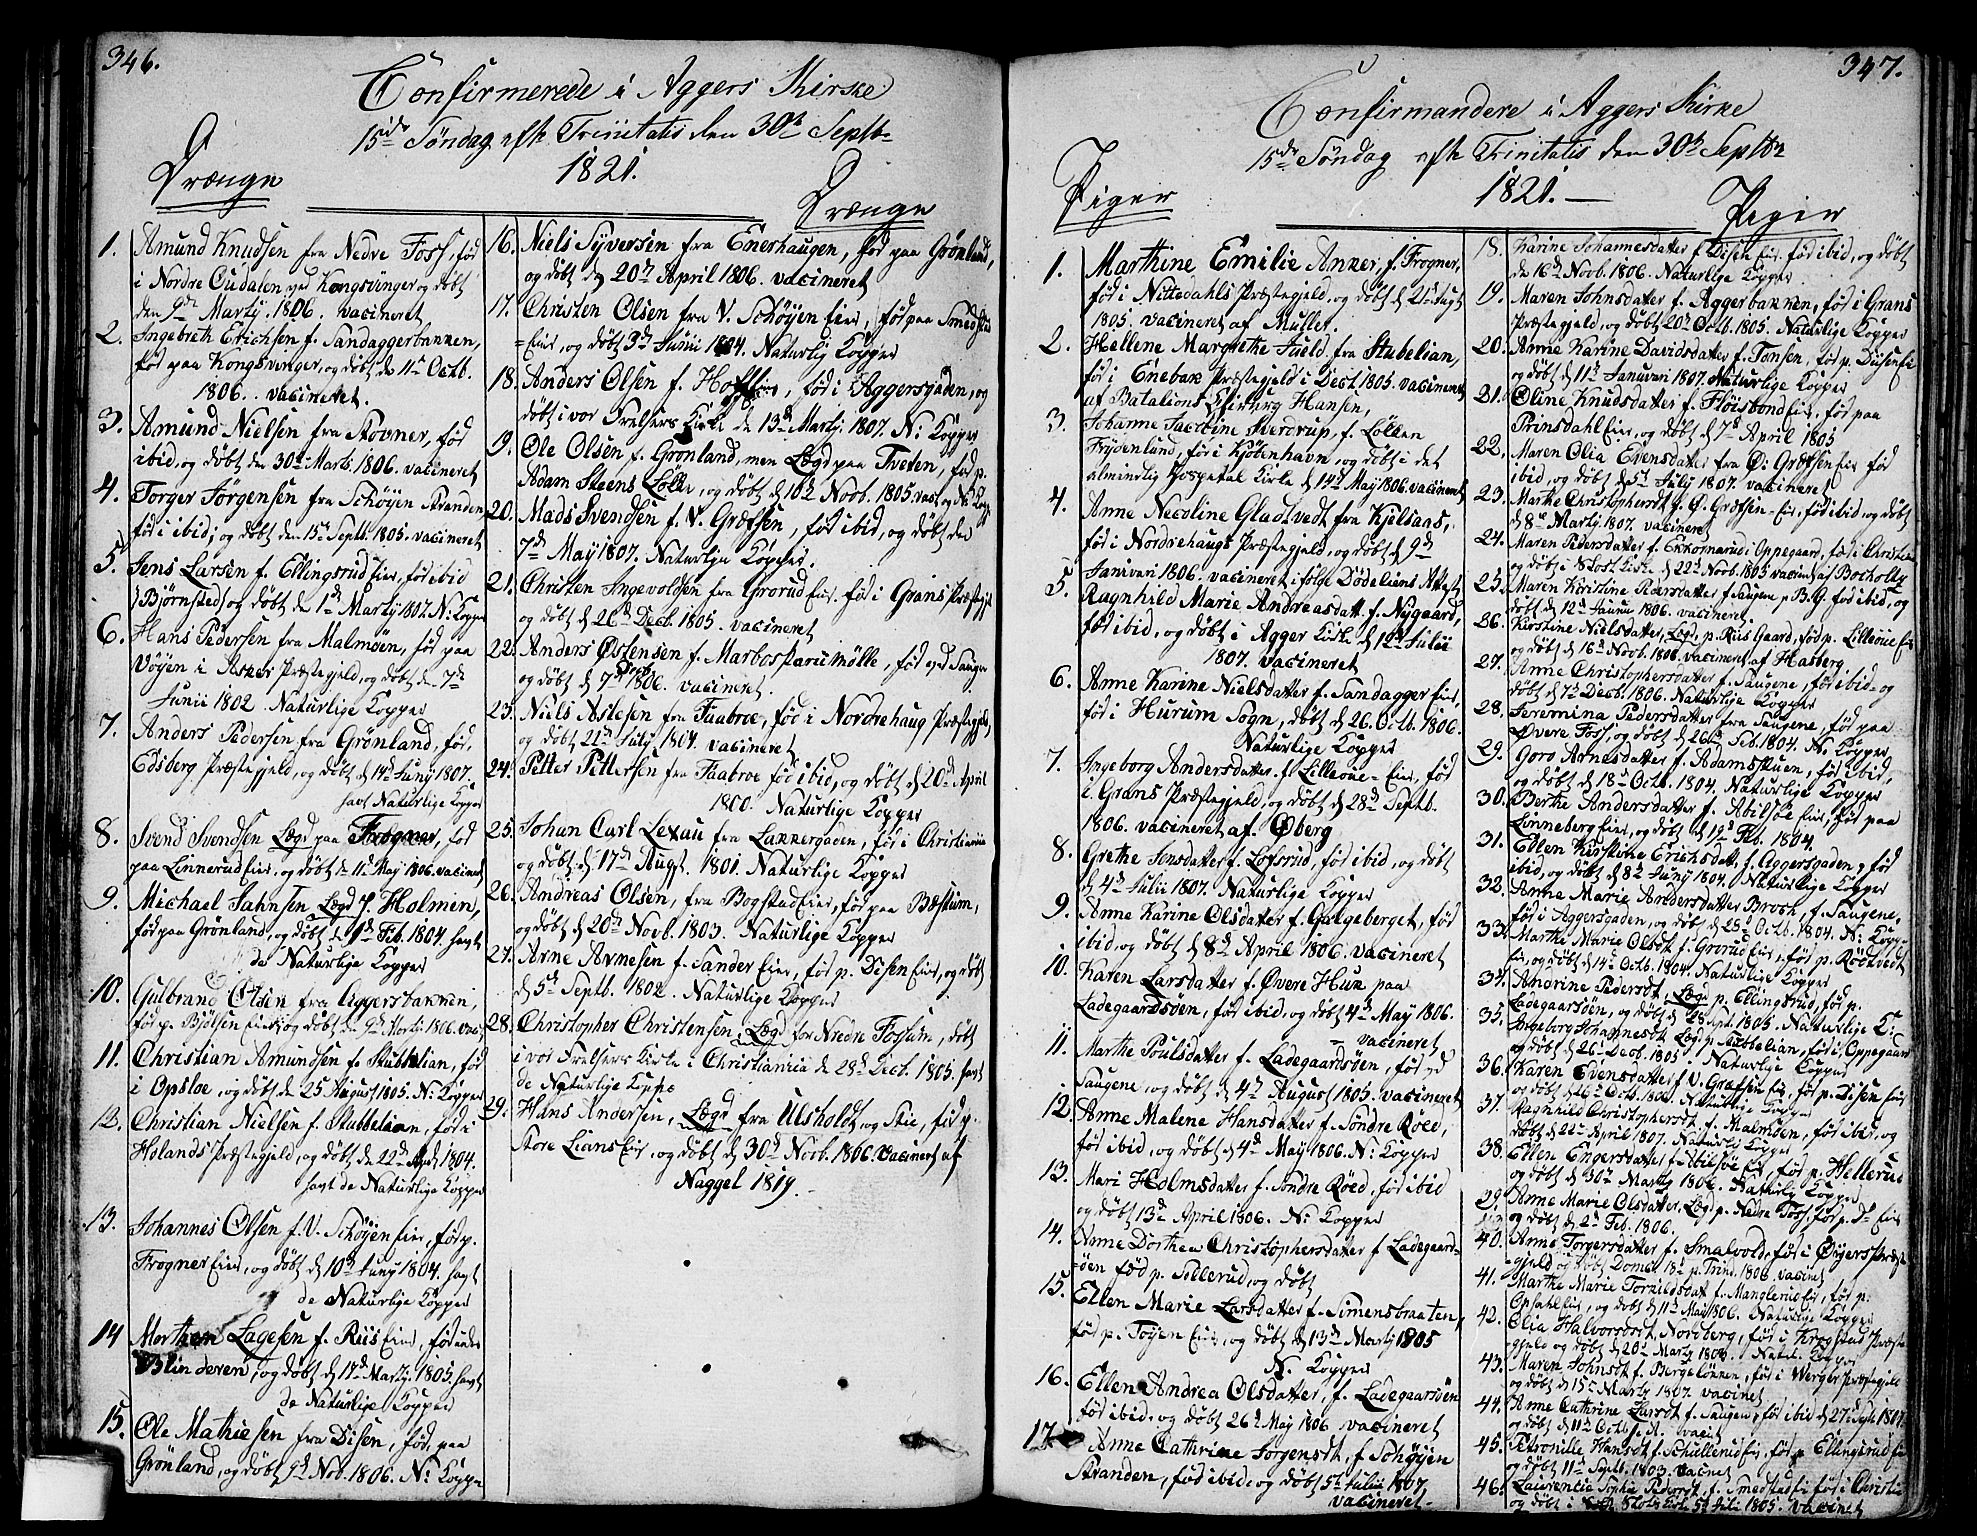 346.
Confirmerede i Aggers Kirske
15de Søndag efter Trinitatis den 30te Septb
1821.
Drænge
1. Amund Knudsen fra Nedre Foss, fød
i Nordre Oudalen ved Kongsvinger og døbt
den 9de Marty. 1806. vacineret
2. Ingebreth Erichsen f. Sandaggerbakken,
fød paa Kongsvinger, og døbt d 11te Octb.
1806. vacineret.
3. Amund Nielsen fra Stovner, fød
ibid, og døbt den 30te Marts. 1806. vacineret
4. Torger Jørgensen fra Schøyen Stranden
fød i ibid; og døbt den 15de Septb. 1805. vacineret
5. Jens Larsen f. Ellingsrud Eier, fød ibid
(Bjørnsted) og døbt den 1de Marty 1807. N: Kopper
6. Hans Pedersen fra Malmøen, fød paa
Vøyen i Asker Præstegjeld, og døbt d. 7de
Junii 1802 Naturlige Kopper
7. Anders Pedersen fra Grønland, fød,
Edsberg Præstegjeld, og døbt d 14de Juny 1807.
havt Naturlige Kopper
8. Svend Svendsen Lægd paa Frogner, fød
paa Linnerud Eier, og døbt d 11te May 1806. vacineret
9. Michael Jahnsen Lægd p. Holmen,
fød paa Grønland, og døbt d 1de Feb. 1804. havt
de Naturlige Kopper
10. Gulbrand Olsen fra Aggersbakken,
fød p. Bjølsen Eier, og døbt den 9de Marti 1806. vac,
11. Christian Amundsen f. Stubbelian, fød
i Opsloe, og døbt den 25 August 1805. N: Kopper
12. Christian Nielsen f. Stubbelian, fød i
Hølands Præstegjeld, og døbt den 22de 1804.
havt de Naturlige Kopper
13. Johannes Olsen f. V. Schøyen Eier, fød p.
Frogner Eier, og døbt d 10de Juny 1804. havt
de Naturlige Kopper
14 Morthen Lagesen f. Riis Eier, fød under
Blinderen, og døbt d 14de Marty. 1805. havt
de Naturlige Kopper
15. Ole Mathiesen fra Disen, fød, paa
Grønland, og døbt 9de Nov. 1806. N: Kopper
Drænge
16. Niels Syversen fra Enerhaugen, fød paa Grønland,
og døbt d 20de April 1806. vacineret
17. Christen Olsen fra V. Schøyen Eier, fød paa Smedstad
Eier, og døbt 3de Junii 1804. Naturlig Kopper
18. Anders Olsen f. Hoff Eier, fød i Aggersgaden, og
døbt i vor Frelsers Kirke de 13de Marty 1807. N: Kopper
19. Ole Olsen f. Grønland, men Lægd paa Tveten, fød p.
Adam Steens Løkke, og døbt d 10de Novb. 1805.
20. Mads Svendsen f. V. Græfsen, fød ibid, og døbt den
7de May 1807. Naturlige Kopper.
21. Christen Ingevoldsen fra Grorud Eier, fød i Grans Præstegjeld
og døbt d 26de Decb. 1805. vacineret
22. Anders Østensen f. Marboskarumølle, fød ved Saugene
og døbt d 7de Decb 1806. vacineret.
23. Niels Aslesen fra Faabroe, fød i Nordrehaug Præstegjeld,
og døbt 21de July 1804. vacineret
24. Petter Pettersen fra Faabroe fød ibid, og døbt d 20de April
1800. Naturlige Kopper
25. Johan Carl Lexau fra Lakkergaden, fød i Christiania
og døbt d 17de Augt. 1801. Naturlige Kopper
26. Andreas Olsen, fra Bogstad Eier, fød paa Bæstum,
og døbt d 20de Novb. 1803. Naturlige Kopper
27. Arne Arnesen f. Sander Eier, fød p. Disen Eier, og døbt
d 5te Septb. 1802. Naturlige Kopper
28. Christopher Christensen Lægd for Nedre Fossum, døbt
i vor Frelsers Kirke i Christiania de 28de Decb. 1805. havt
de Naturlige Kopper
29. Hans Andersen, Lægd fra Ulsholdt og Stie, fød p.
Store Lians Eier, og døbt d 30de Novb. 1806. vacineret af
Naggel 1819.
347.
Confirmandere i Aggers Kirke
15de Søndag efter Trinitatis den 30te Septbr
1821.
Piger
1. Marthine Emilie Anker, f. Frogner,
fød i Nittedahls Præstegjeld, og døbt d 21de Augt
1805. vacineret af Muller.
2. Hellene Margrethe Juell fra Stubelian,
fød i Enebak Præstegjeld i Decb. 1805. vacineret
af Batalions Chirurg Hansen,
3. Johanne Jacobine Sverdrup, f. Løkken
Frydenlund, fød i Kjøbenhavn, og døbt i det
almindelig Hospetal Kirke d 14de May 1806. vacineret
4. Anne Nicoline Gladtvedt fra Kjelsaas,
fød i Nordrehaugs Præstegjeld, og døbt d 9de
Januari 1806. vacineret ifølge Dødeliens Attest
5 Ragnhild Marie Andreasdatt f. Nygaard,
fød ibid, og døbt i Agger Kirke d 19de Julii
1807. vacineret
6. Anne Karine Nielsdatter f. Sandagger Eier,
fød i Hurum Sogn, døbt d 26. Octb. 1806.
Naturlige Kopper
7. Ingeborg Andersdatter f. Lilleøue Eier, fød
i Grans Præstegjeld, og døbt d 28de Septb.
1806. vacineret af. Øberg
8. Grethe Jonsdatter f. Lofsrud, fød ibid, og døbt
d 4de Julii 1807. Naturlige Kopper
9. Anne Karine Olsdatter f. Galgeberget, fød
ibid, og døbt d 8de April 1806. vacineret
10. Karen Larsdatter f. Øvere Huk paa
Ladegaardsøen, fød ibid, og døbt 4de May 1806.
vacineret
11. Marthe Poulsdatter f. Ladegaardsøen, fød ved
Saugene, og døbt d 4de August 1805. vacineret
12. Anne Malene Hansdatter f. Søndre Røed,
fød ibid, og døbt d 4de May 1806. N: Kopper
13. Mari Holmsdatter f. Søndre Røed, fød ibid
og døbt 13de April 1806. N: Kopper
14. Anne Dorthea Christophersdatter f Ladegaards-
øen fød p. Sollerud, og døbt
15. Ellen Marie Larsdatter f. Simensbraaten,
fød p. Tøyen Eier, og døbt d 13de Marty 1805
N. Kopper
16. Ellen Andrea Olsdatter, f. Ladegaarsøen
fød ibid, og døbt 26de May 1806 vacineret
17. Anne Cathrine Jørgensdt, f. Schøyen
Stranden, fød ibid, og døbt 5te Julii 1807.
vacineret
Piger
18. Karine Johannesdatter f. Disen Eier, fød ibid, og døbt
de 16de Novb. 1806. Naturlige Kopper
19. Maren Johnsdatter f. Aggerbakken, fød i Grans
Præstegjeld, og døbt 20de Octb. 1805. Naturlige Kopper
20. Anne Karine Davidsdatter f. Tonsen, fød p. Diisen Ei
og døbt d 11te Januari 1807. Naturlige Kopper
21. Oline Knudsdatter f. Fløisbond Eier, fød paa
Prinsdahl Eier, og døbt d 7de April 1805
22. Maren Olia Evensdatter fra Ø. Græfsen Eier fød
ibid, og døbt d 5te July 1807. vacineret
23. Marthe Christophersdt f. Ø. Græfsen Eier, fød ibid, og døbt
d 8de Marty 1807. vacineret
24. Maren Pedersdatter f. Ekkornrud i Oppegaard, fød i Christian
og døbt i Slots Kirke d 22de Novb. 1805 vacineret af Bocholtz
25. Maren Kirstine Pedersdatter f. Saugen p B. G. fød ibid, og
døbt d 12te Januar 1806. vacineret.
26. Kirstine Nielsdatter, Lægd p. Riis Gaard, fød p. Lilleøue Eier
og døbt d 16de Novb. 1806. vacineret af Hasberg.
27. Anne Christophersdatter f. Saugene, fød ibid og
døbt d 7de Decb. 1806. Naturlige Kopper
28. Jeremina Pedersdatter fra Saugene, fød paa
Øvere Foss, og døbt d 26de Feb. 1804. N. Kopper
29. Goro Arnesdatter f. Adamstuen, fød ibid,
og døbt d 18de Octb. 1804. Naturlige Kopper
30. Berthe Andersdatter f. Abilsøe Eier, fød paa
Linneberg Eier, og døbt d 19de Feb. 1804.
31. Ellen Kirstine Erichsdatt, f. Aggersgaden, fød
ibid, og døbt d 8de Juny 1804. Naturlige Kopper
32. Anne Marie Andersdatter Broch, f. Saugene,
fød i Aggersgaden, og døbt d 25de Octb. 1804. N: Kopper
33. Marthe Marie Olsdt f. Grorud Eier, fød p. Rødtvedt
Eier, og døbt d 14de Octb. 1804. Naturlige Kopper
34. Andrine Pedersdt, Lægd p. Ellingsrud, fød p.
Ladegaarsøen, og døbt d 28de Sept. 1805. Naturlige K:
35. Ingeborg Johannesdt Lægd p. Stubbelian, fød i Oppegaard
og døbt d 26de Decb. 1805 Naturlige Kopper
36. Karen Evensdatter f. V. Grafsen Ei, fød p. Disen Eier
og døbt d 26de Octb. 1806. Naturlige Kopper
37. Ragnhild Christophersdt f. Malmøen, fød ibid, og
døbt d 22de April 1807. Naturlig Kopper
38. Ellen Engersdatter f. Abilsøe Ei, fød p. Hellerud
og døbt d 30te Marty 1806. Naturlig Kopper
39. Anne Marie Olsdatter, Lægd p. Nedre Foss, fød p. Ds Eier
og døbt d 2de Feb. 1806.
40. Anne Torgersdatter f. Smalvold, fød i Øyers Præste
gjeld og døbt Domc. 18de p. Trind. 1806. vacinet
41. Marthe Marie Tornildsdat f. Manglerud Ei, fød p.
Opsahl Eier, og døbt d 11te May 1806. Naturlig Kopper
42. Olia Halvorsdt. Nordberg, fød i Krogstad Præste
gjeld og døbt d 20de Marty 1806. Natul: Kopper
43. Maren Johnsdt f. Bergeløkken, fød i Werger Præstegjeld
og døbt d 15de Marty 1807. vacinet
44. Anne Cathrine Larsdt f. Saugen, fød ibid d 27de Septb 1804
og døbt d 11te Octb. vacit
45. Petronille Hansdt f. Schullerud Ei, fød p Ellingsrud Ei
og døbt d 11te Septb. 1803. vacinet
46. Laurentia Sophie Pedersdt. f. Smedstad Ei fød i Christia
og døbt i Slots Kirke 5te Juli 1805. vacinet